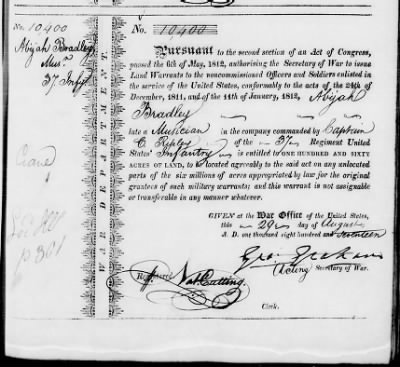 No. 10400
Abijah Bradley
Mus.n
37 Inf.y
Crane
1
p 301
WAR DEPARTMENT.
No. 10400
Pursuant to the second section of an Act of Congress,
passed the 6th of May, 1812, authorising the Secretary of War to issue
Land Warrants to the noncommissioned Officers and Soldiers enlisted in
the service of the United States, conformably to the acts of the 24th of
December, 1811, and of the 11th of January, 1812, Abijah
Bradley
late a Musician in the company commanded by Captain
of the 37 Regiment United
States' Infantry is entitled to ONE HUNDRED AND SIXTY
ACRES OF LAND, to be located agreeably to the said act on any unlocated
parts of the six millions of acres appropriated by law for the original
grantees of such military warrants; and this warrant is not assignable
or transferable in any manner whatever.
GIVEN at the War Office of the United States,
this 29 day of August
A. D. one thousand eight hundred and seventeen
Geo. Graham
(Acting) Secretary of War.
Registered Nat. Cutting.
Clerk.